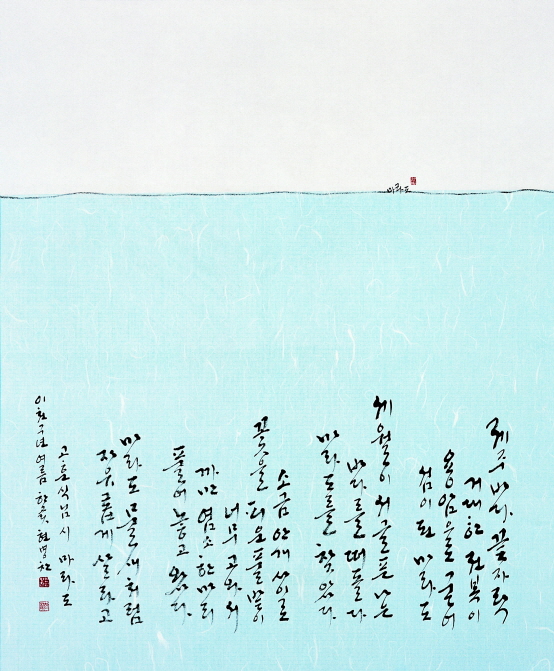 마라도
제주 바다 끝자락
거대한 전복이
용암으로 굳어
섬이 된 마라도
세월이 서글픈 나는
바다를 떠돌다
마라도를 찾았다.
소금 안개 사이로
꽃을 피운 풀밭이
너무 고와서
까만 염소 한 마리
풀어 놓고 왔다.
마라도 물새처럼
자유롭게 살라고
고훈식님 시 마라도
이천구년 여름 한곬 현병찬